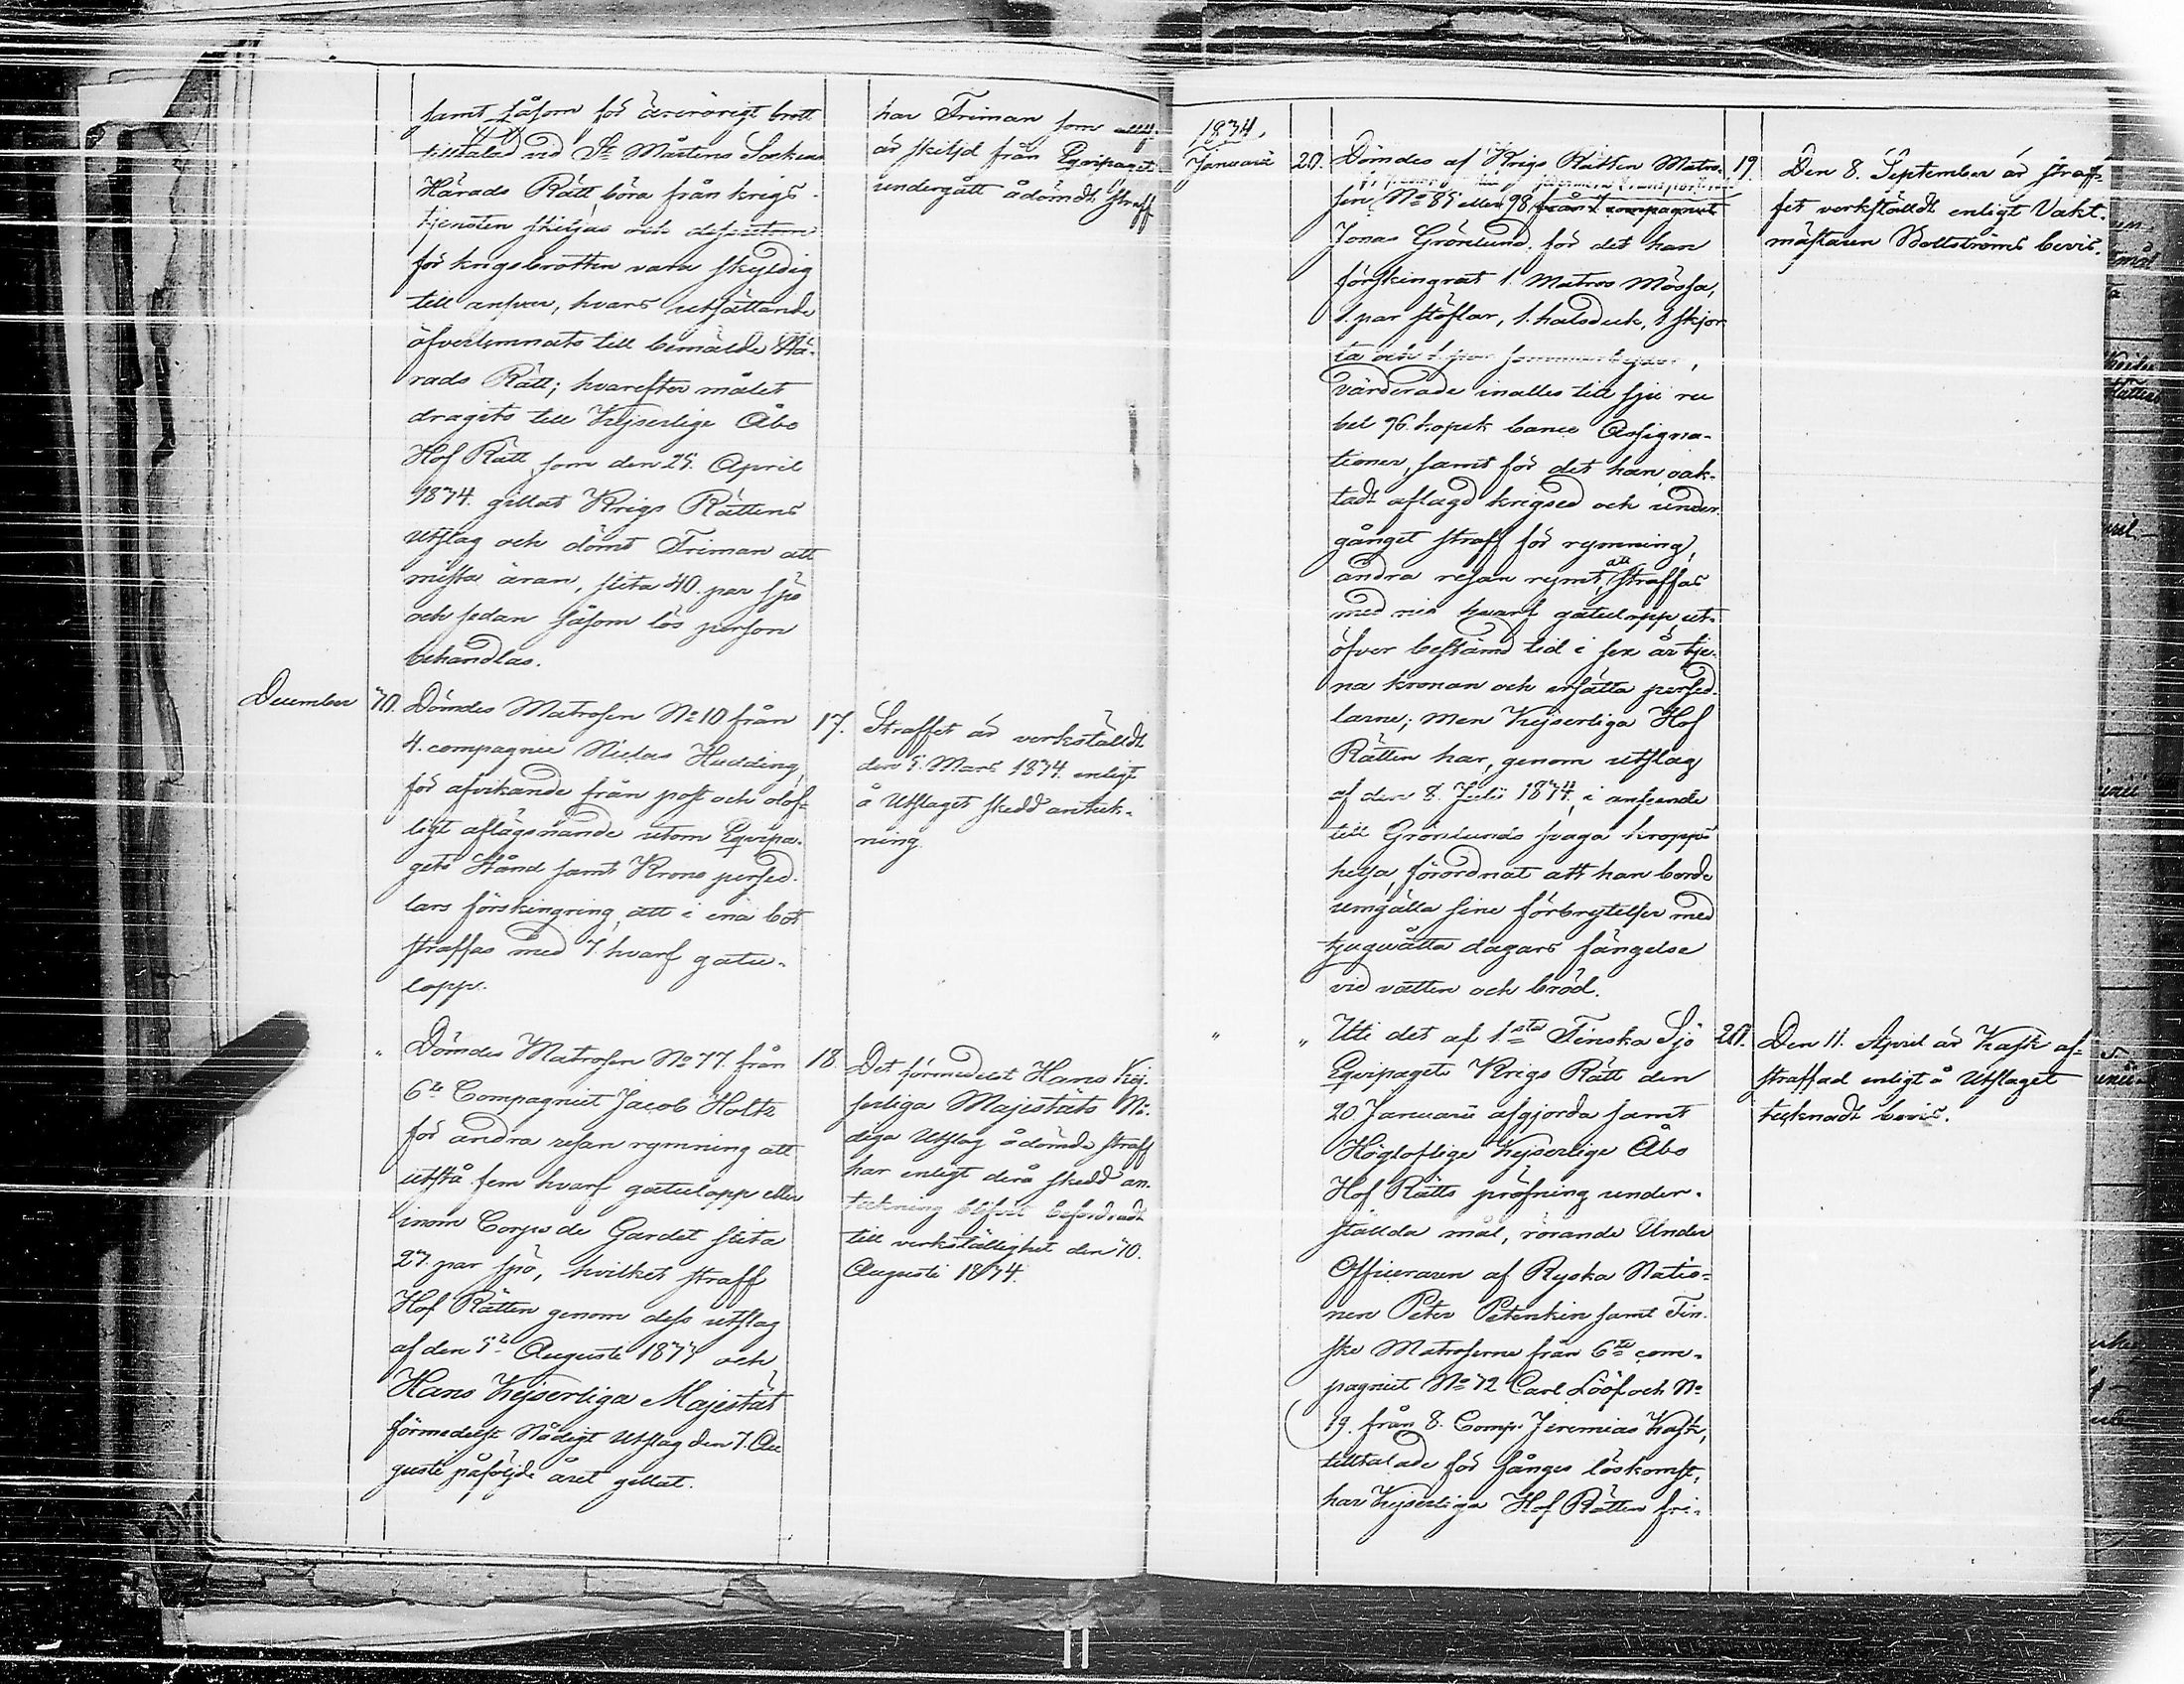 samt såsom för ärerörigt brott
tilltalad vid St Mårtens Sockens
Härads Rätt böra från krigs-
tjensten skiljas och dessutom
för krigsbrotten vara skyldig
till ansvar, hvars utsättande
öfverlemnats till bemälde Hä-
rads Rätt; hvarefter målet
dragits till Kejserlige Åbo
Hof Rätt som den 25. April
1834. gillat Krigs Rättens
Utslag och dömt Friman att
mista äran, slita 40. par spö
och sedan såsom lös person
behandlas.
har Friman som
är skiljd från Eqvipaget
undergått ådömdt straff
December 10. Dömdes Matrosen No 10 från
4. compagnie Niclas Hudding,
för afvikande från post och olof-
ligt aflägsnande utom Eqvipa-
gets Stånd samt Krono persed-
lars förskingring att i ena bot
straffas med 7. hvarf gatu-
lopp.
17. Straffet är verkstäldt
den 5. Mars 1834. enligt
å Utslaget skedd anteck-
ning.
" Dömdes Matrosen No 77. från
6te Compagniet Jacob Holtz
för andra resan rymning att
utstå fem hvarf gatulopp eller
inom Corps de Gardet slita
27. par spö, hvilket straff
Hof Rätten genom dess utslag
af den 5te Augusti 1833 och
Hans Kejserliga Majestät
förmedelst Nådigt Utslag den 7. Au
gusti påföljde året gillat.
18. Det förmedelst Hans Kej-
serliga Majestäts Nå-
diga Utslag ådömde straff
har enligt derå skedd an-
teckning blifvit befordradt
till verkställighet den 10.
Augusti 1834.
1834.
Januarii 20. Dömdes af Krigs Rätten Matro-
sen No 85 eller 98 från compagniet
Jonas Grönlund för det han
förskingrat 1. Matros Mössa,
1. par stöflar, 1. halsduk, 1 skjor
ta och 1 par sommarbyxor,
värderade inalles till sju ru
bel 96. kopek banco Assigna-
tioner, samt för det han, oak-
tadt aflagd krigsed och under-
gånget straff för rymning,
andra resan rymt, att straffas
med nio hvarf gatulopp, ut-
öfver bestämd tid i sex år tje-
na kronan och ersätta persed-
larne; men Kejserliga Hof
Rätten har, genom utslag
af den 8. Julii 1834, i anseende
till Grönlunds svaga kropps
helsa, förordnat att han borde
umgälla sine förbrytelser med
tjuguåtta dagars fängelse
vid vatten och bröd.
19. Den 8. September är straf-
fet verkstäldt enligt Vakt-
mästaren Bollströms bevis.
" " Uti det af 1sta Finska Sjö
Eqvipagets Krigs Rätt den
20 Januarii afgjorda samt
Högloflige Kejserlige Åbo
Hof Rätts pröfning under-
ställda mål, rörande Under
Officeraren af Ryska Natio-
nen Peter Petenkin samt Fin-
ske Matroserne från 6te com-
pagniet No 72 Carl Lööf och No
19. från 8. Comp. Jeremias Kask,
tilltalade för fånges löskomst,
har Kejserliga Hof Rätten fri-
20. Den 11. April är Kask af-
straffad enligt å Utslaget
tecknadt bevis.